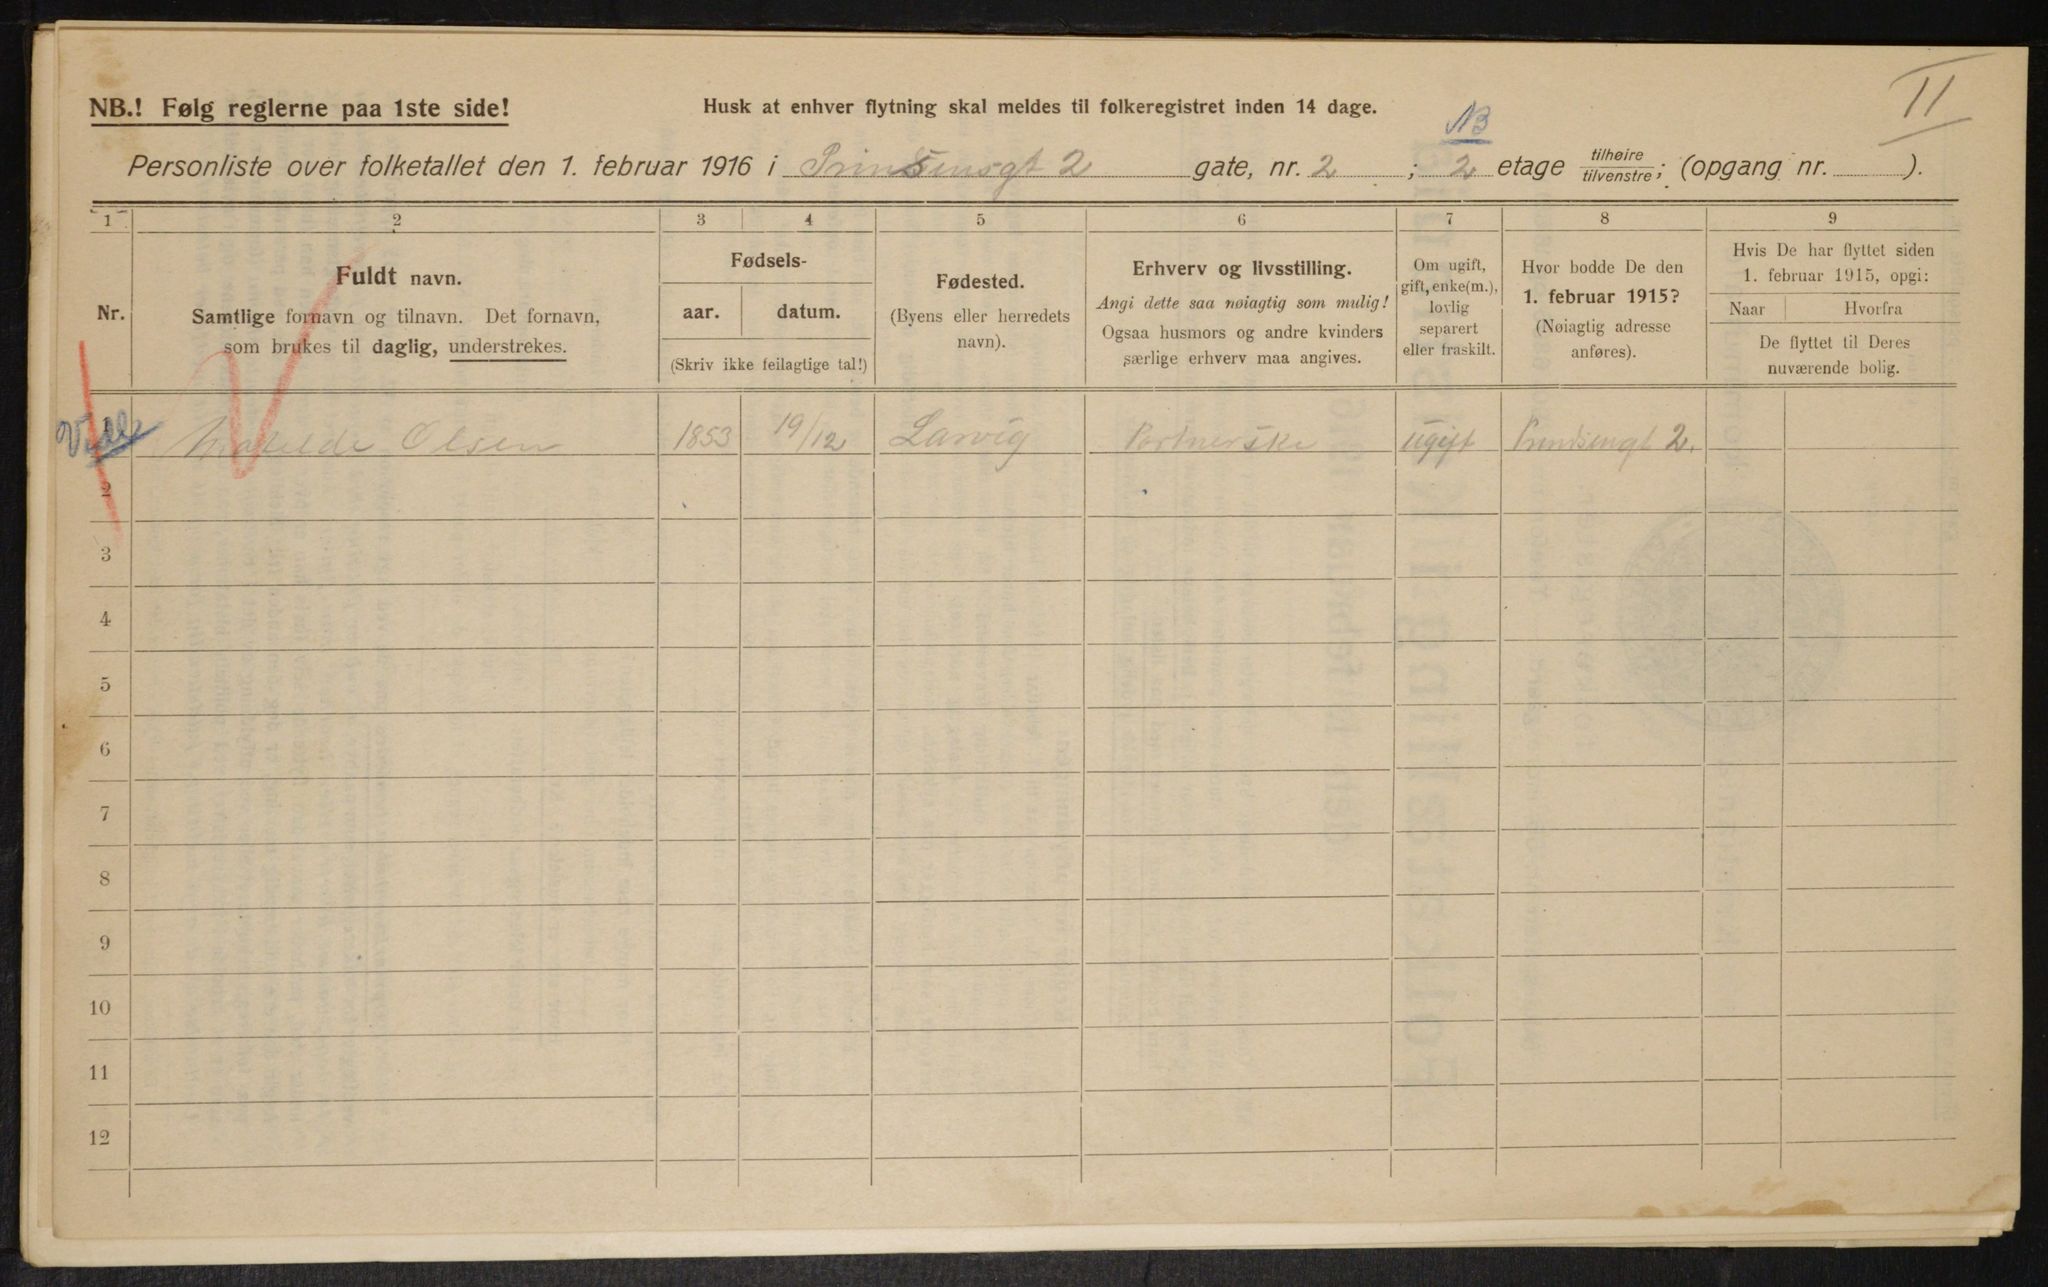 II
NB.! Følg reglerne paa 1ste side!
Husk at enhver flytning skal meldes til folkeregistret inden 14 dage.
NB
Personliste over folketallet den 1. februar 1916 i Prinsensgt 2 gate, nr. 2 ; 2 etage tilhøire tilvenstre; (opgang nr. ).
1 2 3 4 5 6 7 8 9
Nr.
Fuldt navn.
Samtlige fornavn og tilnavn. Det fornavn,
som brukes til daglig, understrekes.
Fødsels-
aar. datum.
(Skriv ikke feilagtige tal!)
Fødested.
(Byens eller herredets
navn).
Erhverv og livsstilling.
Angi dette saa nøiagtig som mulig!
Ogsaa husmors og andre kvinders
særlige erhverv maa angives.
Om ugift,
gift, enke(m.),
lovlig
separert
eller fraskilt.
Hvor bodde De den
1. februar 1915?
(Nøiagtig adresse
anføres).
Hvis De har flyttet siden
1. februar 1915, opgi:
Naar Hvorfra
De flyttet til Deres
nuværende bolig.
1 Matilde Olsen 1853 19/12 Larvig Portnerske ugift Prindsensgt 2.
2
3
4
5
6
7
8
9
10
11
12